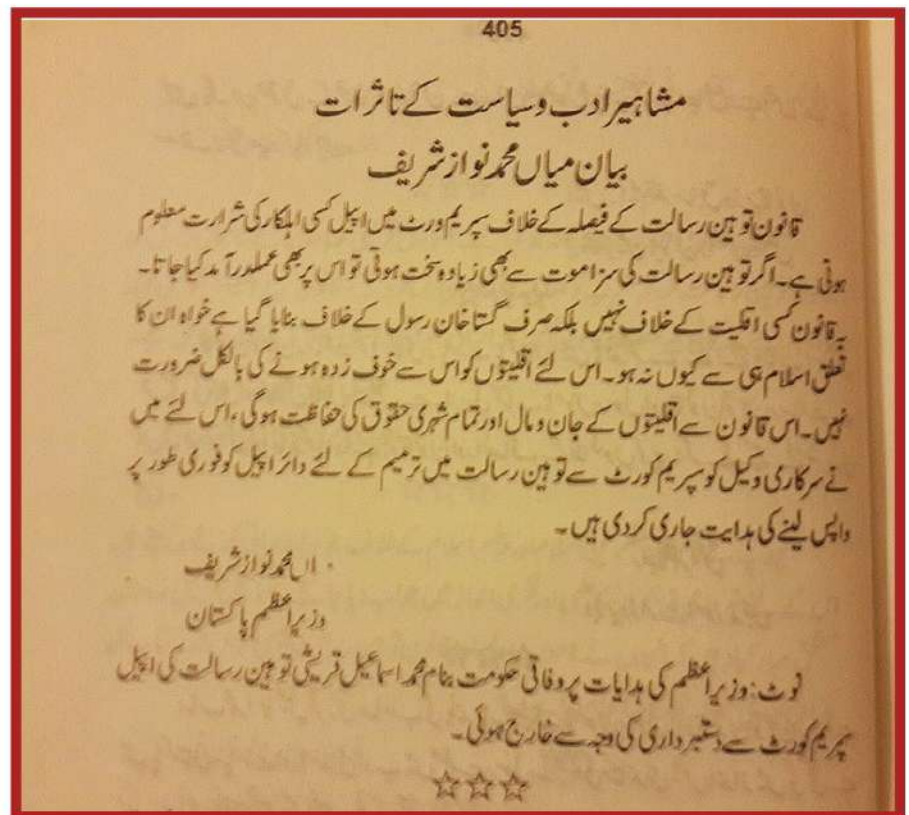 405
مشاہیر ادب و سیاست کے تاثرات
بیان میاں محمد نواز شریف
قانون توہین رسالت کے فیصلہ کے خلاف سپریم ورٹ میں اپیل کسی اہلکار کی شرارت معلوم
ہوتی ہے۔ اگر توہین رسالت کی سزا موت سے بھی زیادہ سخت ہوتی تو اس پر بھی عملدرآمد کیا جاتا۔
یہ قانون کسی اقلیت کے خلاف نہیں بلکہ صرف گستاخان رسول کے خلاف بنایا گیا ہے خواہ ان کا
تعلق اسلام ہی سے کیوں نہ ہو۔ اس لئے اقلیتوں کو اس سے خوف زدہ ہونے کی بالکل ضرورت
نہیں۔ اس قانون سے اقلیتوں کے جان و مال اور تمام شہری حقوق کی حفاظت ہوگی، اس لئے میں
نے سرکاری وکیل کو سپریم کورٹ سے توہین رسالت میں ترمیم کے لئے دائر اپیل کو فوری طور پر
واپس لینے کی ہدایت جاری کردی ہیں۔
اں محمد نواز شریف
وزیراعظم پاکستان
نوٹ: وزیراعظم کی ہدایات پر وفاقی حکومت بنام محمد اسماعیل قریشی توہین رسالت کی اپیل
سپریم کورٹ سے دستبرداری کی وجہ سے خارج ہوئی۔
☆☆☆